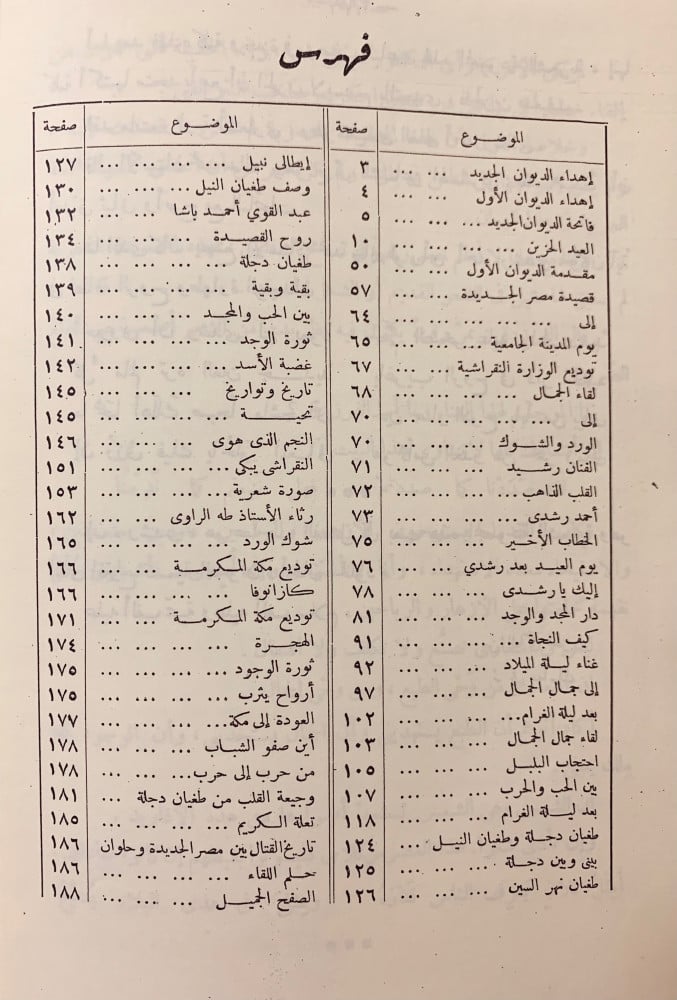 فهرس
الموضوع صفحة
إهداء الديوان الجديد ... ... ٣
إهداء الديوان الأول ... ... ٤
فاتحة الديوان الجديد ... ... ٥
العيد الحزين ... ... ... ... ١٠
مقدمة الديوان الأول ... ... ٥٠
قصيدة مصر الجديدة ... ... ... ٥٧
إلى ... ... ... ... ... ٦٤
يوم المدينة الجامعية ... ... ... ٦٥
توديع الوزارة النقراشية ... ... ٦٧
لقاء الجمال ... ... ... ... ٦٨
إلى ... ... ... ... ... ٧٠
الورد والشوك ... ... ... ٧٠
الفنان رشيد ... ... ... ... ٧١
القلب الذاهب ... ... ... ... ٧٢
أحمد رشدى ... ... ... ... ٧٣
الخطاب الأخير ... ... ... ٧٥
يوم العيد بعد رشدي ... ... ... ٧٦
إليك يا رشدى ... ... ... ... ٧٨
دار المجد والوجد ... ... ... ٨١
كيف النجاة ... ... ... ... ٩١
غناء ليلة الميلاد ... ... ... ٩٢
إلى جمال الجمال ... ... ... ٩٧
بعد ليلة الغرام ... ... ... ... ١٠٢
لقاء جمال الجمال ... ... ... ١٠٣
احتجاب البلبل ... ... ... ١٠٥
بين الحب والحرب ... ... ... ١٠٧
بعد ليلة الغرام ... ... ... ١١٨
طغيان دجلة وطغيان النيل ... ... ١٢٤
بينى وبين دجلة ... ... ... ١٢٥
طغيان نهر السين ... ... ... ١٢٦
الموضوع صفحة
إيطالى نبيل ... ... ... ... ١٢٧
وصف طغيان النيل ... ... ... ... ١٣٠
عبد القوي أحمد باشا ... ... ... ١٣٢
روح القصيدة ... ... ... ... ١٣٤
طغيان دجلة ... ... ... ... ١٣٨
بقية وبقية ... ... ... ... ١٣٩
بين الحب والمجد ... ... ... ١٤٠
ثورة الوجد ... ... ... ... ١٤١
غضبة الأسد ... ... ... ... ١٤٢
تاريخ وتواريخ ... ... ... ١٤٥
تحية ... ... ... ... ١٤٥
النجم الذى هوى ... ... ... ١٤٦
النقراشى يبكى ... ... ... ... ١٥١
صورة شعرية ... ... ... ... ١٥٣
رثاء الأستاذ طه الراوى ... ... ١٦٢
شوك الورد ... ... ... ... ١٦٥
توديع مكة المكرمة ... ... ... ١٦٦
كازانوفا ... ... ... ... ١٦٦
توديع مكة المكرمة ... ... ... ١٧١
الهجرة ... ... ... ... ١٧٤
ثورة الوجود ... ... ... ... ١٧٥
أرواح يثرب ... ... ... ... ١٧٥
العودة إلى مكة ... ... ... ... ١٧٧
أين صفو الشباب ... ... ... ١٧٨
من حرب إلى حرب ... ... ... ١٧٨
وجيعة القلب من طغيان دجلة ... ١٨١
تعلة الكريم ... ... ... ... ١٨٥
تاريخ القتال بين مصر الجديدة وحلوان ١٨٦
حلم اللقاء ... ... ... ... ١٨٦
الصفح الجميل ... ... ... ... ١٨٨